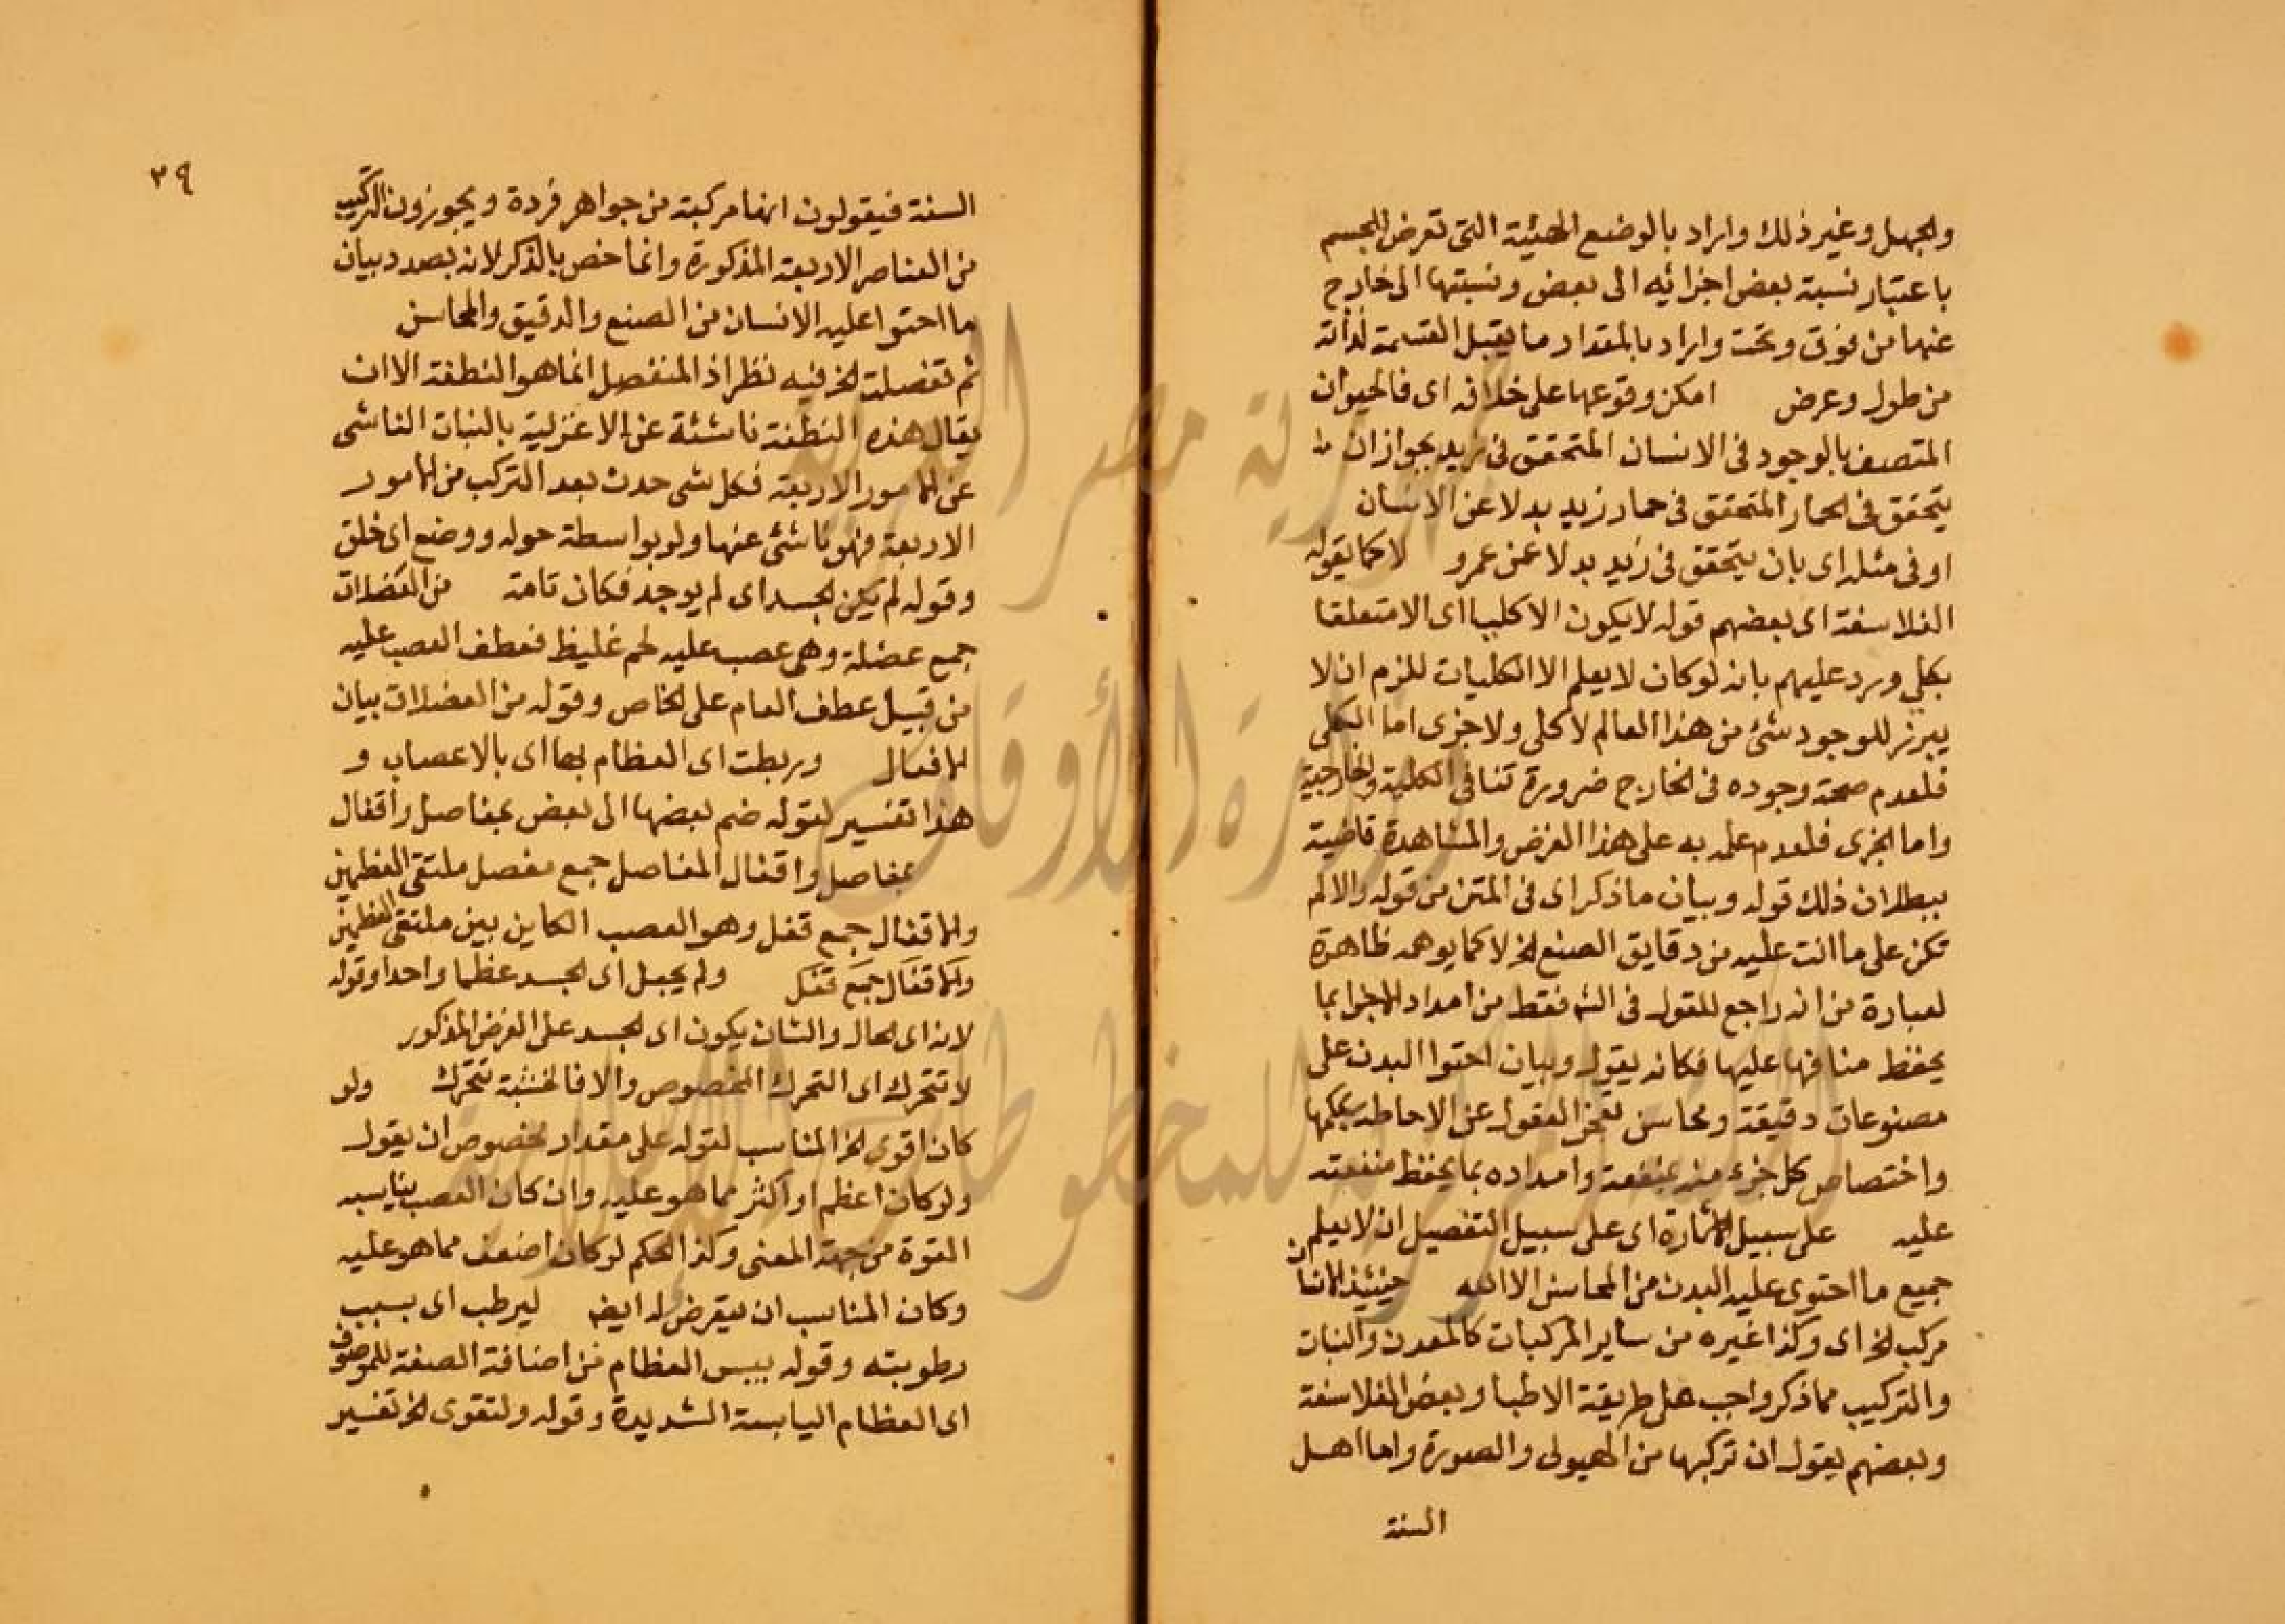 والجهل وغير ذلك واراد بالوضع الهيئة التى تعرض للجسم
باعتبار نسبة بعض اجزائه الى بعض ونسبتها الى خارج
عنها من فوق وتحت واراد بالمقدار ما يقبل القسمة لذاته
من طول وعرض امكن وقوعها على خلافه اى فالحيوان
المتصف بالوجود فى الانسان المتحقق فى زيد يجوز ان
يتحقق فى الحمار المتحقق فى حمار زيد بدلا عن الانسان
او فى مثله اى بان يتحقق فى زيد بدلا عن عمرو لا كما يقوله
الفلاسفة اى بعضهم قوله لا يكون الا كليا اى الا متعلقا
بكلي ورد عليهم بانه لو كان لا يعلم الا الكليات للزم ان لا
يبرز للوجود شئ من هذا العالم لا كلى ولا جزى اما الكلى
فلعدم صحة وجوده فى الخارج ضرورة تنافى الكلية والخارجية
واما الجزى فلعدم علمه به على هذا الفرض والمشاهدة قاضية
ببطلان ذلك قوله وبيان ما ذكر اى فى المتن من قوله والا لم
تكن على ما انت عليه من دقايق الصنع الخ لا كما يوهمه ظاهرة
لعبارة من انه راجع للقول فى الش فقط من امداد الاجزا بما
يحفظ منافعها عليها فكانه يقول وبيان احتوا البدن على
مصنوعات دقيقة ومحاسن تعجز العقول عن الاحاطه بحكمها
واختصاص كل جزء منه بمنفعة وامداده بما يحفظ منفعته
عليه على سبيل الاشارة اى على سبيل التفصيل ان لا يعلم
جميع ما احتوى عليه البدن من المحاسن الا الله حينئذ الانسان
مركب الخ اى وكذا غيره من ساير المركبات كالمعدن والنبات
والتركيب مما ذكر واجب على طريقة الاطبا وبعض الفلاسفة
وبعضهم يقول ان تركبها من الهيولى والصورة واما اهل
السنة
٣٩
السنة فيقولون انها مركبة من جواهر فردة ويجوزون التركيب
من العناصر الاربعة المذكورة وانما خص بالذكر لانه بصدد بيان
ما احتوا عليه الانسان من الصنع والدقيق والمحاسن
ثم تفصلت الخ فيه نظر اذ المنفصل انما هو النطفة الا ان
يقال هذه النطفة ناشئة عن الاغزلية بالنبات الناشى
عن الامور الاربعة فكل شى حدث بعد التركب من الامور
الاربعة فهو ناشئ عنها ولو بواسطة حوله ووضع اى خلق
وقوله لم يكن الجسد اى لم يوجد فكان تامة من العضلات
جمع عضلة وهى عصب عليه لحم غليظ فعطف العصب عليه
من قبيل عطف العام على الخاص وقوله من العضلات بيان
لافعال وربطت اى العظام بها اى بالاعصاب و
هذا تفسير لقوله ضم بعضها الى بعض بمفاصل واقفال
بمفاصل واقفال المفاصل جمع مفصل ملتقى العظمين
والاقفال جمع قفل وهو العصب الكاين بين ملتقى العظمين
والاقفال جمع قفل ولم يجعل اى الجسد عظما واحدا وقوله
لانه اى الحال والشان يكون اى الجسد على الفرض المذكور
لا تتحرك اى التحرك المخصوص والا فالخشبة تتحرك ولو
كان اقوى الخ المناسب لقوله على مقدار مخصوص ان يقول
ولو كان اعظم او اكثر مما هو عليه وان كان العصب يناسبه
القوة من جهة المعنى وكذا الحكم لو كان اضعف مما هو عليه
وكان المناسب ان يتعرض له ايض ليرطب اى بسبب
رطوبته وقوله يبس العظام من اضافة الصفة للموصوف
اى العظام اليابسة الشديدة وقوله ولتقوى الخ تفسير